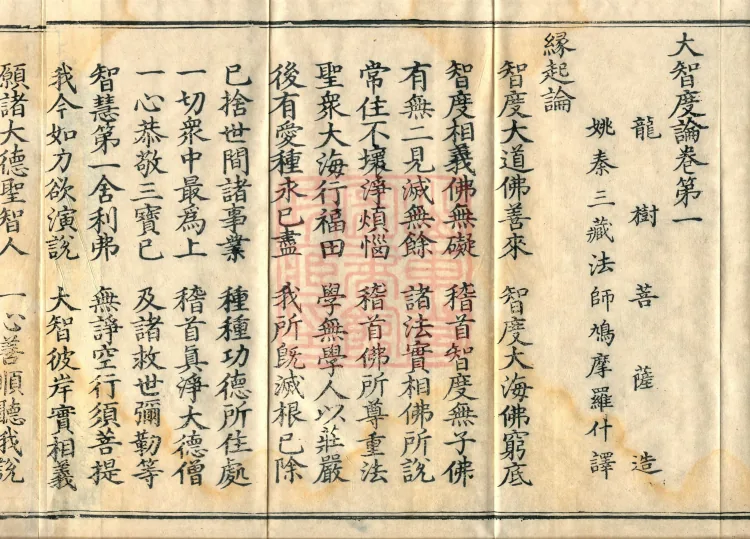 大智度論卷第一
龍樹菩薩造
姚秦三藏法師鳩摩羅什譯
緣起論
智度大道佛善來　智度大海佛窮底
智度相義佛無礙　稽首智度無子佛
有無二見滅無餘　諸法實相佛所說
常住不壞淨煩惱　稽首佛所尊重法
聖衆大海行福田　學無學人以莊嚴
後有愛種永已盡　我所既滅根已除
已捨世間諸事業　種種功德所住處
一切衆中最為上　稽首真淨大德僧
一心恭敬三寶已　及諸救世彌勒等
智慧第一舍利弗　無諍空行須菩提
我今如力欲演說　大智彼岸實相義
願諸大德聖智人　一心善順聽我說